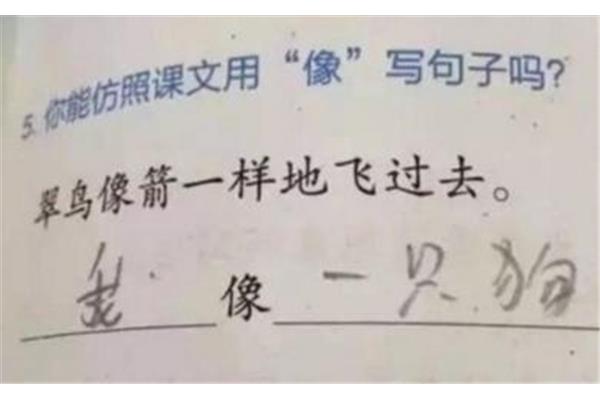 5. 你能仿照课文用“像”写句子吗?
翠鸟像箭一样地飞过去。
我像一只狗